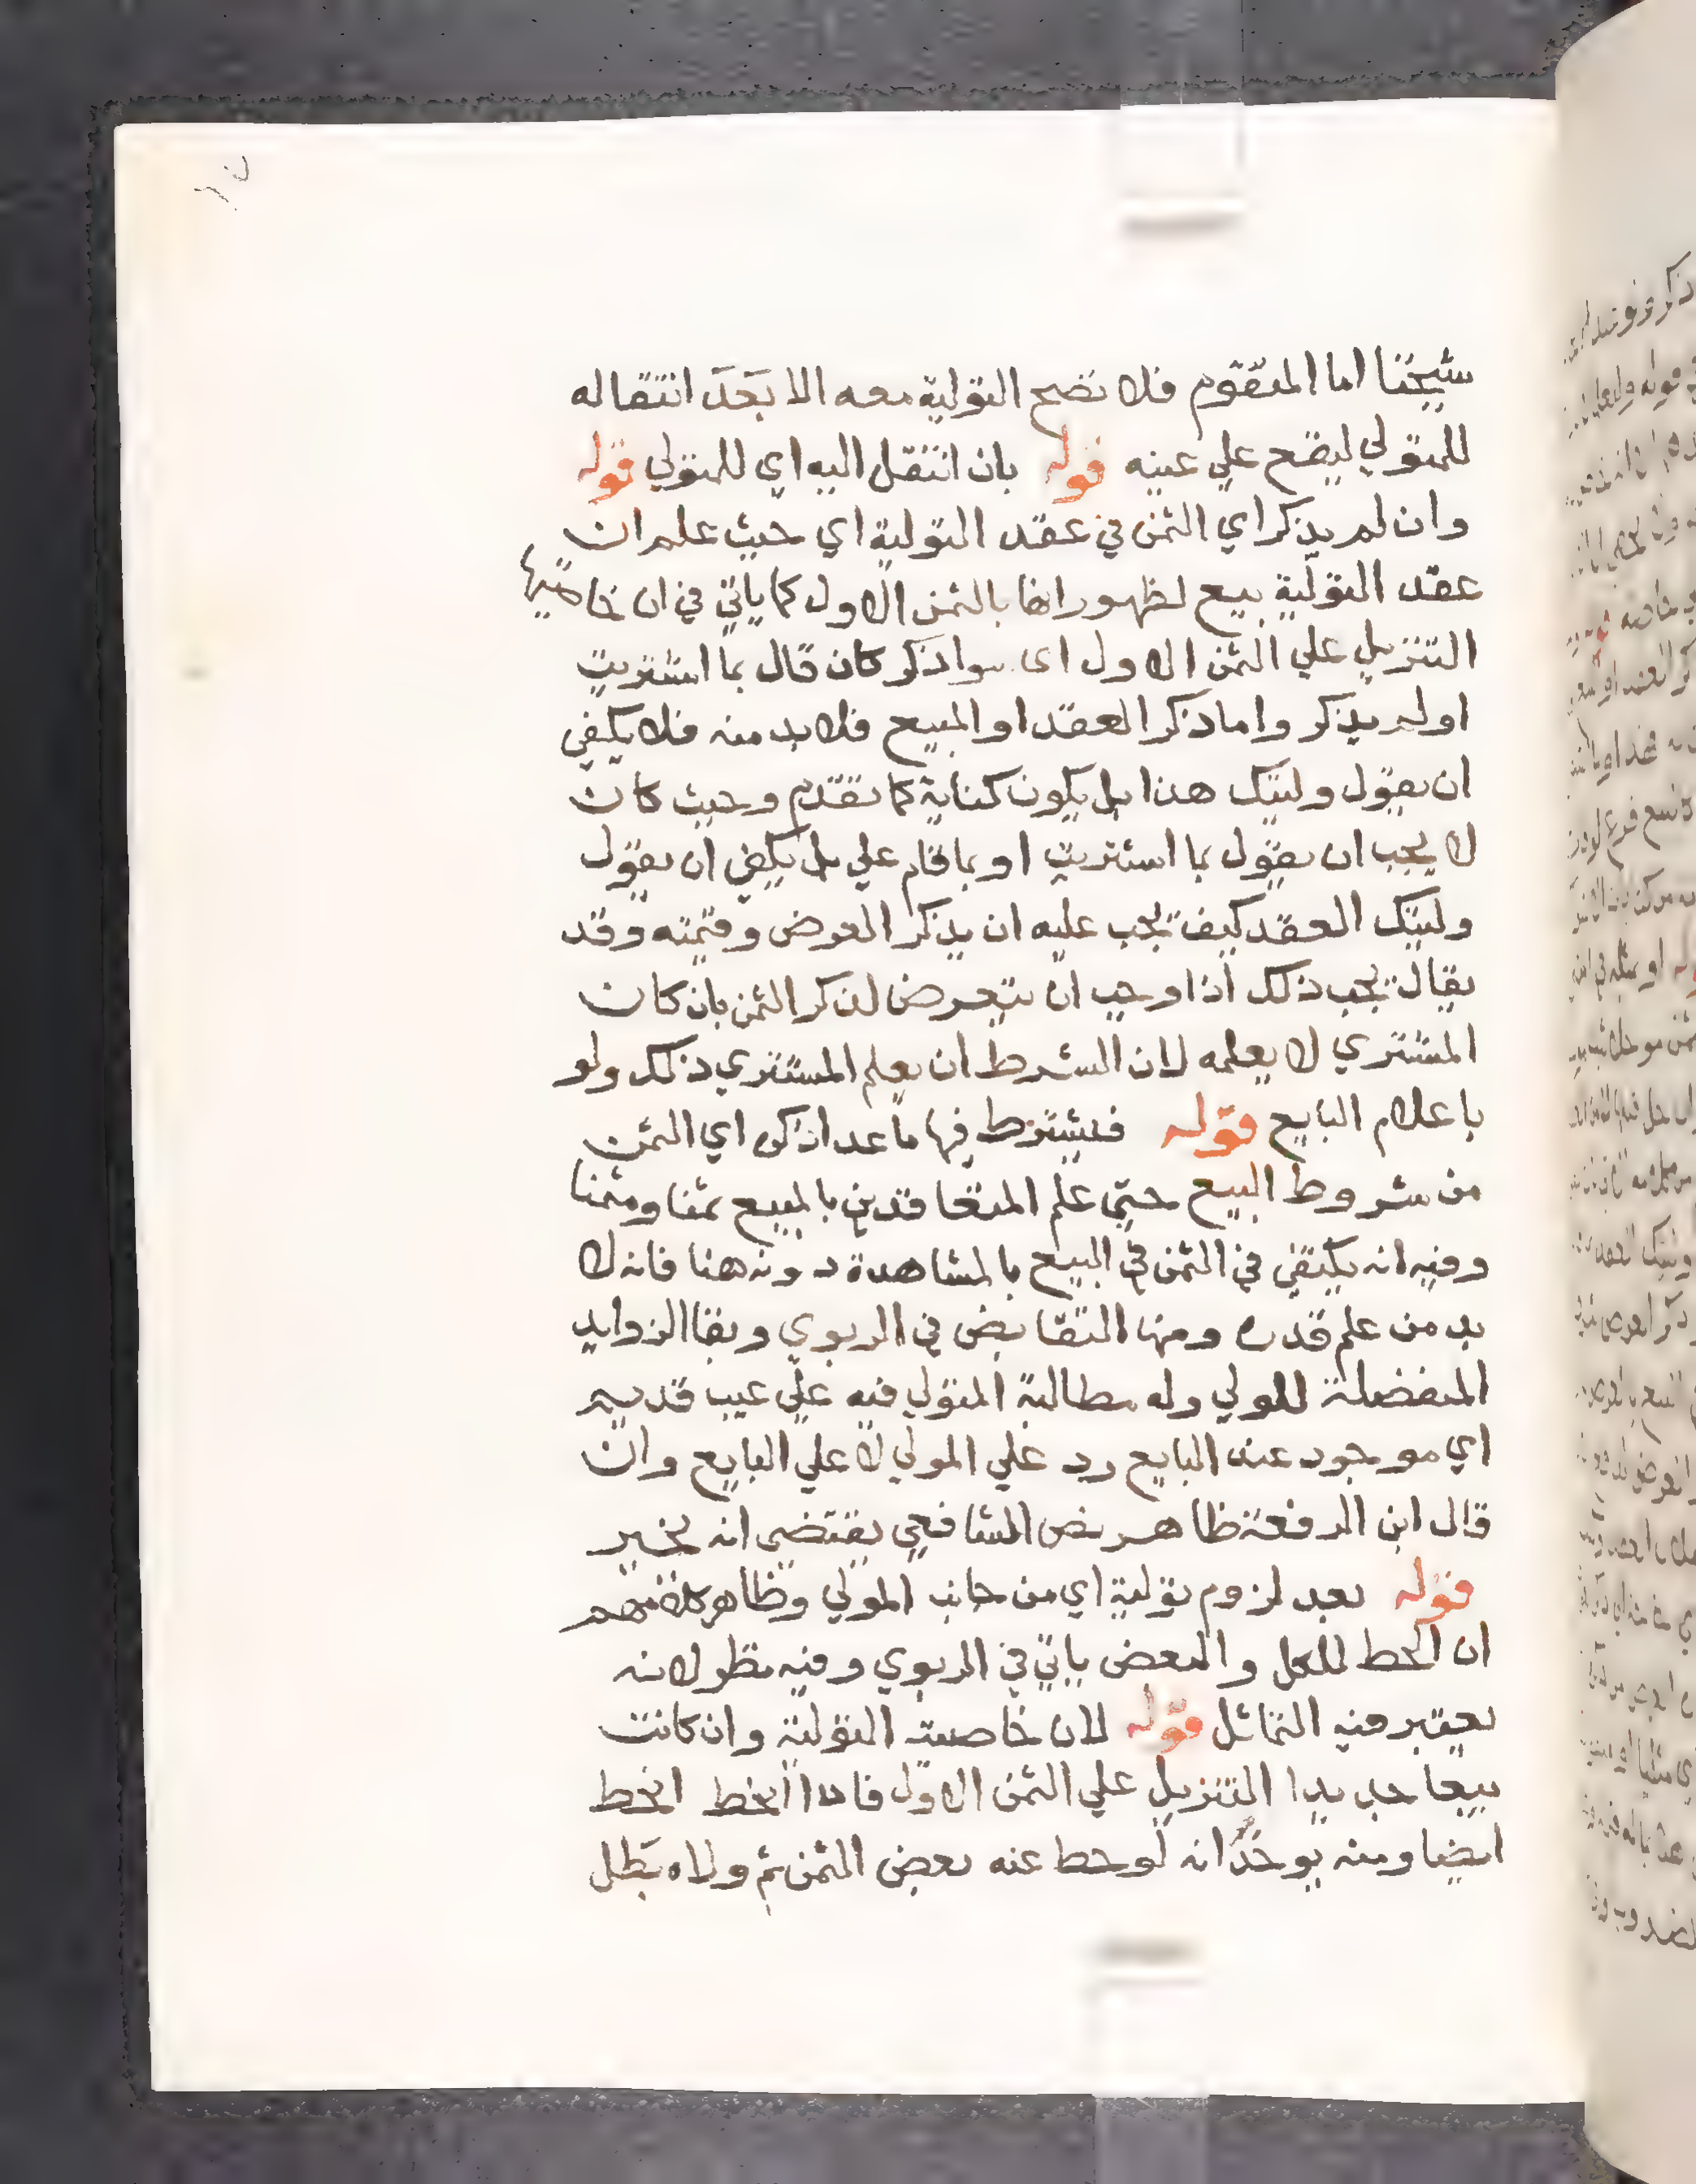 شيخنا اما المتقوم فلا تصح التولية معه الا بعد انتقاله
للمتولي ليقع علي عينه قوله بان انتقل اليه اي للمتولي قوله
وان لم يذكر اي الثمن في عقد التولية اي حيث علم ان
عقد التولية بيع لظهور انها بالثمن الاول كما ياتي في ان خاصيتها
التنزيل علي الثمن الاول اى سوا ذكر كان قال بما اشتريت
اولم يذكر واما ذكر العقد او المبيع فلا بد منه فلا يكفي
ان يقول وليتك هذا بل يكون كناية كما تقدم وحيث كان
لا يجب ان يقول بما اشتريت او بما قام علي بل يكفي ان يقول
وليتك العقد كيف يجب عليه ان يذكر العوض وقيمته وقد
يقال يجب ذلك اذا وجب ان يتعرض لذكر الثمن بان كان
المشتري لا يعلمه لان الشرط ان يعلم المشتري ذلك ولو
باعلام البايع قوله فيشترط فيها ما عدا ذكره اي الثمن
من شروط البيع حتي علم المتعاقدين بالمبيع ثمنا ومثمنا
وفيه انه يكتفي في الثمن في البيع بالمشاهدة دونه هنا فانه لا
بد من علم قدره ومنها التقابض في الربوي وبقا الزوايد
المنفصلة للمولي وله مطالبة المتولي فيه علي عيب قديم
اي موجود عند البايع رد علي المولي لا علي البايع وان
قال ابن الرفعة ظاهر نص الشافعي يقتضي انه يخير
قوله بعد لزوم تولية اي من جانب المولي وظاهر كلامهم
ان الحط للكل والبعض ياتي في الربوي وفيه نظر لانه
يعتبر فيه التماثل قوله لان خاصية التولية وان كانت
بيعا جديدا التنزيل علي الثمن الاول فاذا انحط انحط
ايضا ومنه يوخذ انه لو حط عنه بعض الثمن ثم ولاه بطل